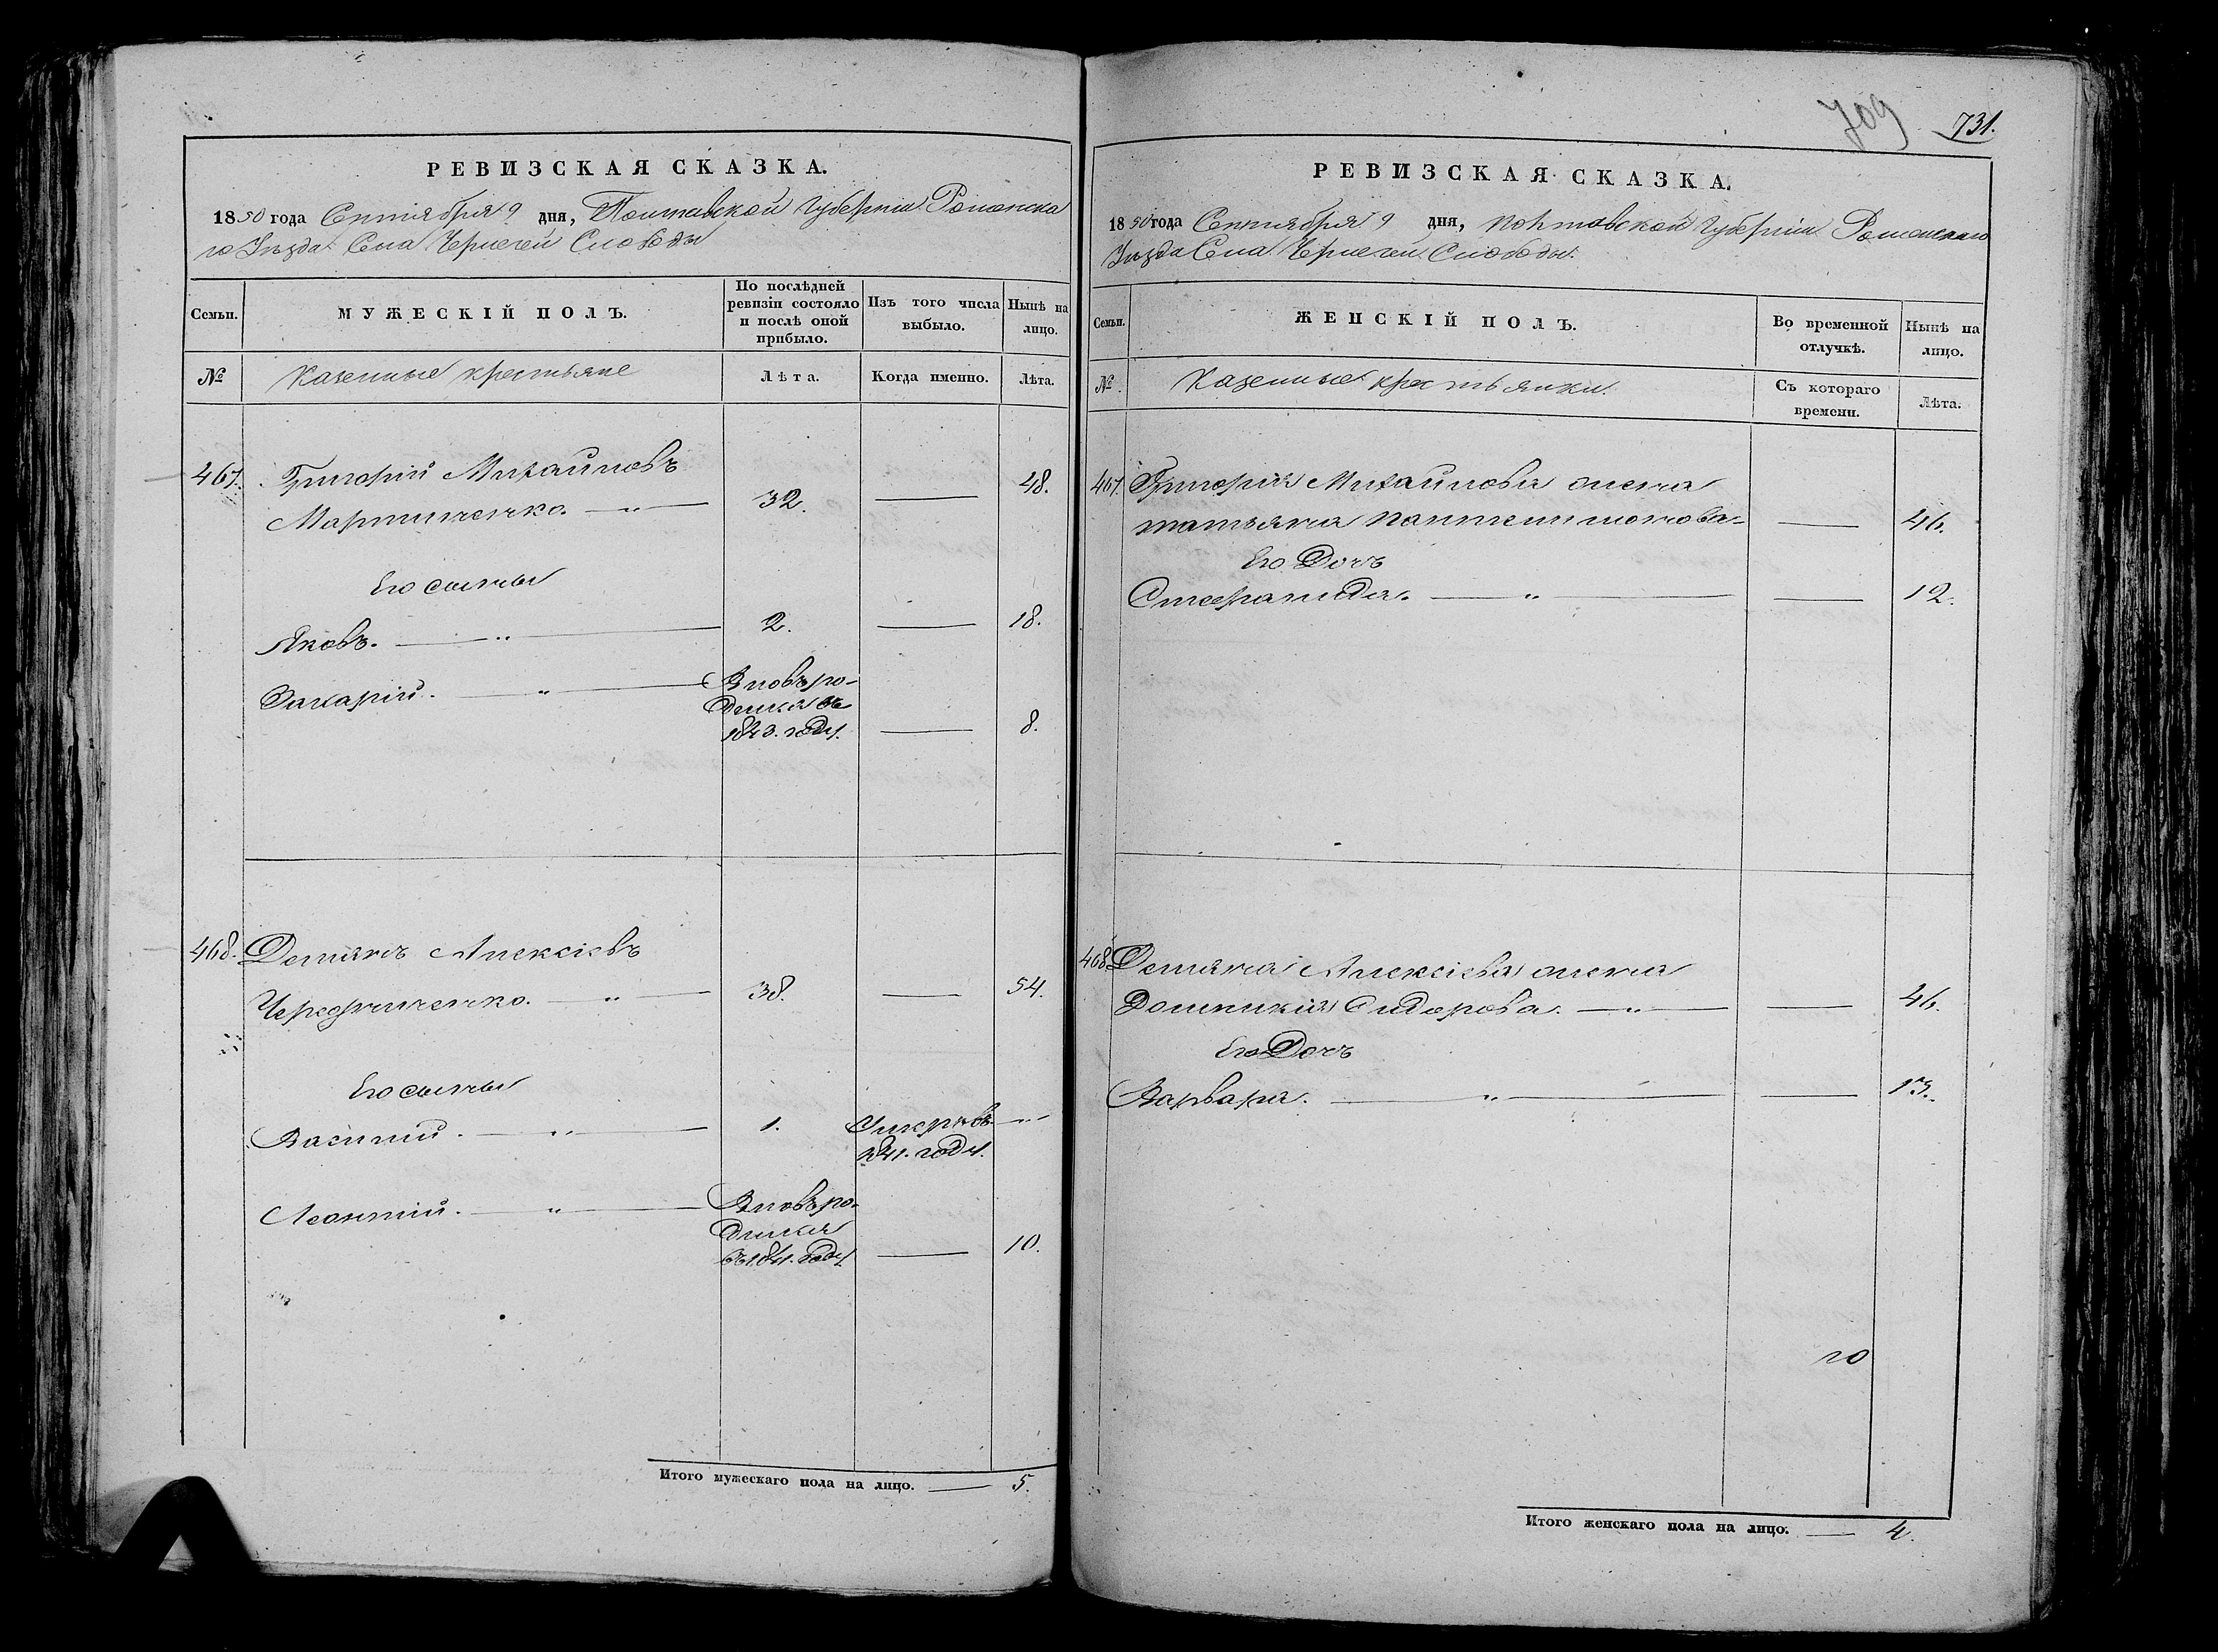 РЕВИЗСКАЯ СКАЗКА.
1850 года Сентября 9 дня, Полтавской Губерніи Роменска
го Уѣзда Села Чернечей Слободы
Семьи.
МУЖЕСКІЙ ПОЛЪ.
По послѣдней ревизіи состояло и послѣ оной прибыло.
Изъ того числа выбыло.
Нынѣ на лицо.
№
Казенные крестьяне
Лѣта.
Когда именно.
Лѣта.
467. Григорій Михайловъ
Мартиненко. — „ — 32. — 48.
Его сыны
Яковъ. — „ — 2. — 18.
Захарій. — „ — Вновь ро-
дился въ
1843. году. — 8.
468. Демянъ Алексіевъ
Чередниченко. — „ — 38. — 54.
Его сыны
Василий. — „ — 1. Умеръ въ — „ —
1841. году.
Леонтий. — „ — Вновь ро-
дился
въ 1841. году — 10.
Итого мужескаго пола на лицо. — 5.
709
731.
РЕВИЗСКАЯ СКАЗКА.
1850 года Сентября 9 дня, Полтавской Губерніи Роменскаго
Уѣзда Села Чернечей Слободы.
Семьи.
ЖЕНСКІЙ ПОЛЪ.
Во временной отлучкѣ.
Нынѣ на лицо.
№.
Казенные крестьянки.
Съ котораго времени.
Лѣта.
467. Григорія Михайлова жена
татьяна Пантелимонова — — 46.
Его Дочь
Степанида. — „ — — 12.
468 Демяна Алексіева жена
Домникія Сидорова. — „ — — 46.
Его Дочь
Варвара. — „ — — 13.
го
Итого женскаго пола на лицо. — 4.